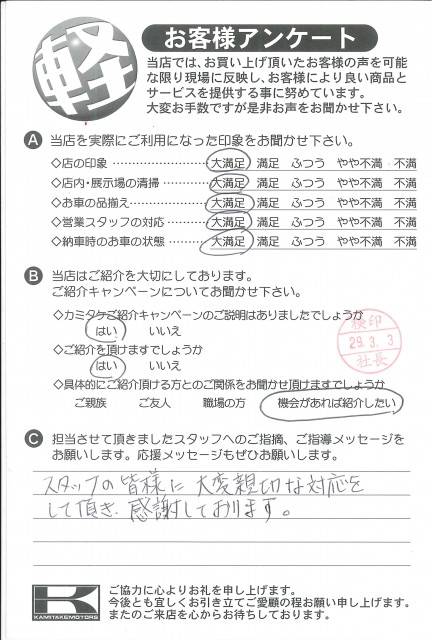 軽
お客様アンケート
当店では、お買い上げ頂いたお客様の声を可能
な限り現場に反映し、お客様により良い商品と
サービスを提供する事に努めています。
大変お手数ですが是非お声をお聞かせ下さい。
A 当店を実際にご利用になった印象をお聞かせ下さい。
◇店の印象 ……………… 大満足 満足 ふつう やや不満 不満
◇店内・展示場の清掃 ………… 大満足 満足 ふつう やや不満 不満
◇お車の品揃え …………… 大満足 満足 ふつう やや不満 不満
◇営業スタッフの対応 ……… 大満足 満足 ふつう やや不満 不満
◇納車時のお車の状態 ……… 大満足 満足 ふつう やや不満 不満
B 当店はご紹介を大切にしております。
ご紹介キャンペーンについてお聞かせ下さい。
◇カミタケご紹介キャンペーンのご説明はありましたでしょうか
はい いいえ
◇ご紹介を頂けますでしょうか
はい いいえ
◇具体的にご紹介頂ける方とのご関係をお聞かせ頂けますでしょうか
ご親族 ご友人 職場の方 機会があれば紹介したい
検印
29.3.3
社長
C 担当させて頂きましたスタッフへのご指摘、ご指導メッセージを
お願いします。応援メッセージもぜひお願いします。
スタッフの皆様に大変親切な対応を
して頂き、感謝しております。
K
KAMITAKEMOTORS
ご協力に心よりお礼を申し上げます。
今後とも宜しくお引き立てご愛顧の程お願い申し上げます。
またのご来店を心からお待ちしております。